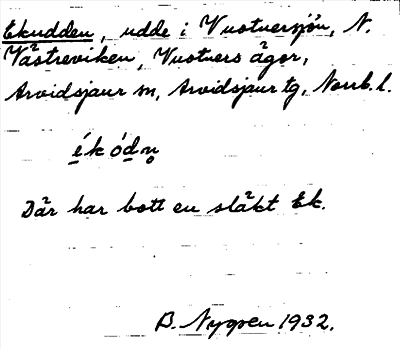 Ekudden, udde i Vuotnersjön, N.
Västreviken, Vuotners ägor,
Arvidsjaur sn, Arvidsjaur tg, Norrb. l.
é̱k ó̱d̲n̥
Där har bott en släkt Ek.
B. Nygren 1932.